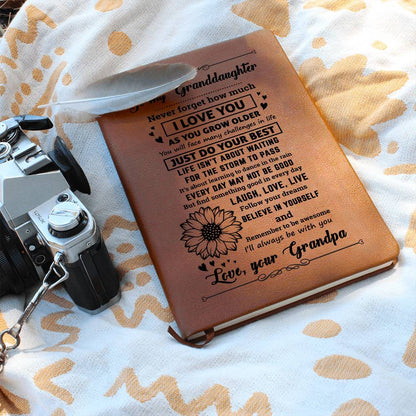 Granddaughter
Never forget how much
I LOVE YOU
AS YOU GROW OLDER
You will face many challenges in life
JUST DO YOUR BEST
LIFE ISN'T ABOUT WAITING
FOR THE STORM TO PASS
It's about learning to dance in the rain
EVERY DAY MAY NOT BE GOOD
But find something good in every day
LAUGH, LOVE, LIVE
Follow your dreams
BELIEVE IN YOURSELF
and
Remember to be awesome
I'll always be with you
Love, your Grandpa